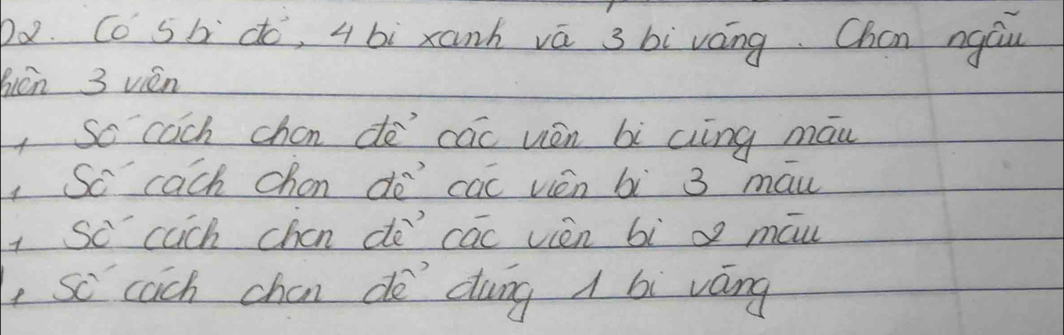 02. Có 5 bi đỏ, 4 bi xanh và 3 bi vàng. Chọn ngẫu
hiên 3 viên
+ Số cách chọn để các viên bi cùng màu
+ Số cách chọn để các viên bi 3 màu
+ Số cách chọn để các viên bi 2 màu
+ Số cách chọn để đúng 1 bi vàng